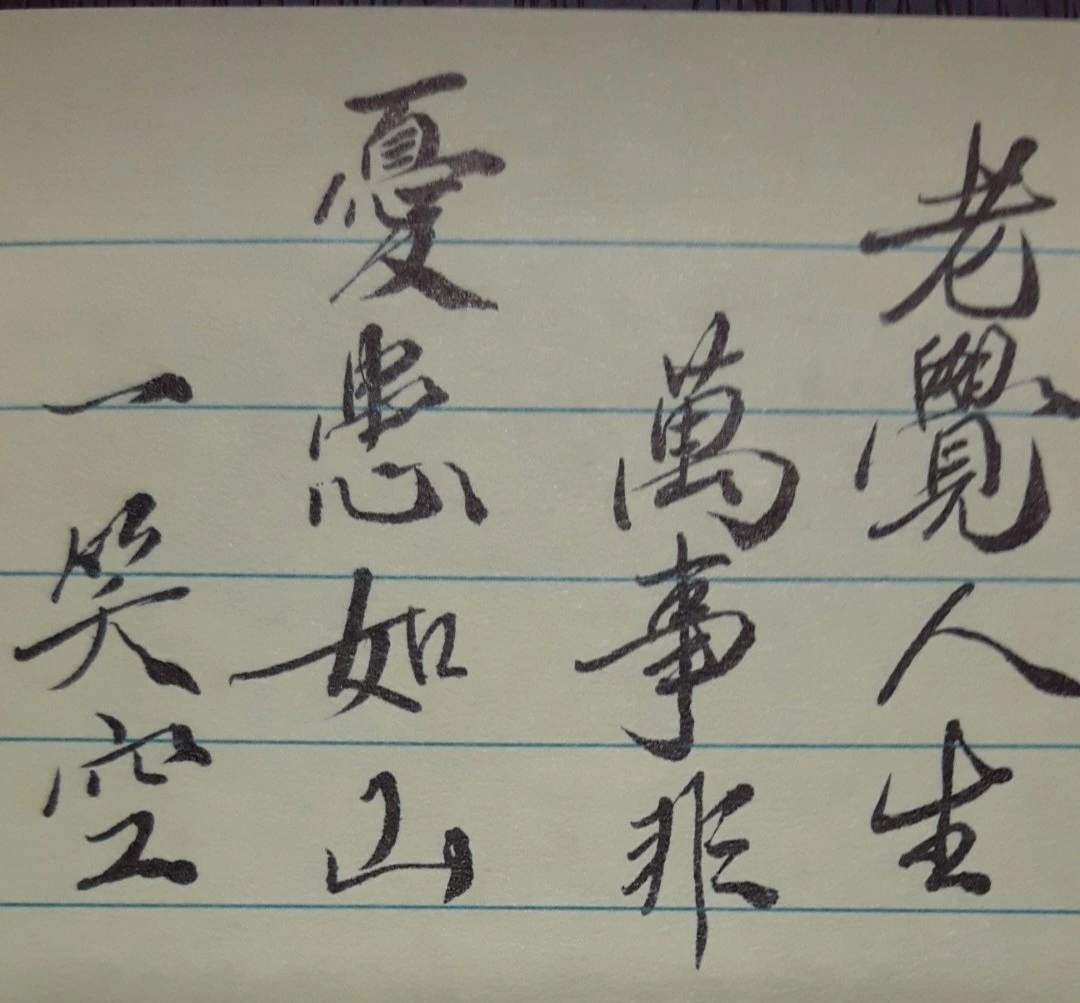 老覺人生
萬事非
憂患如山
一笑空